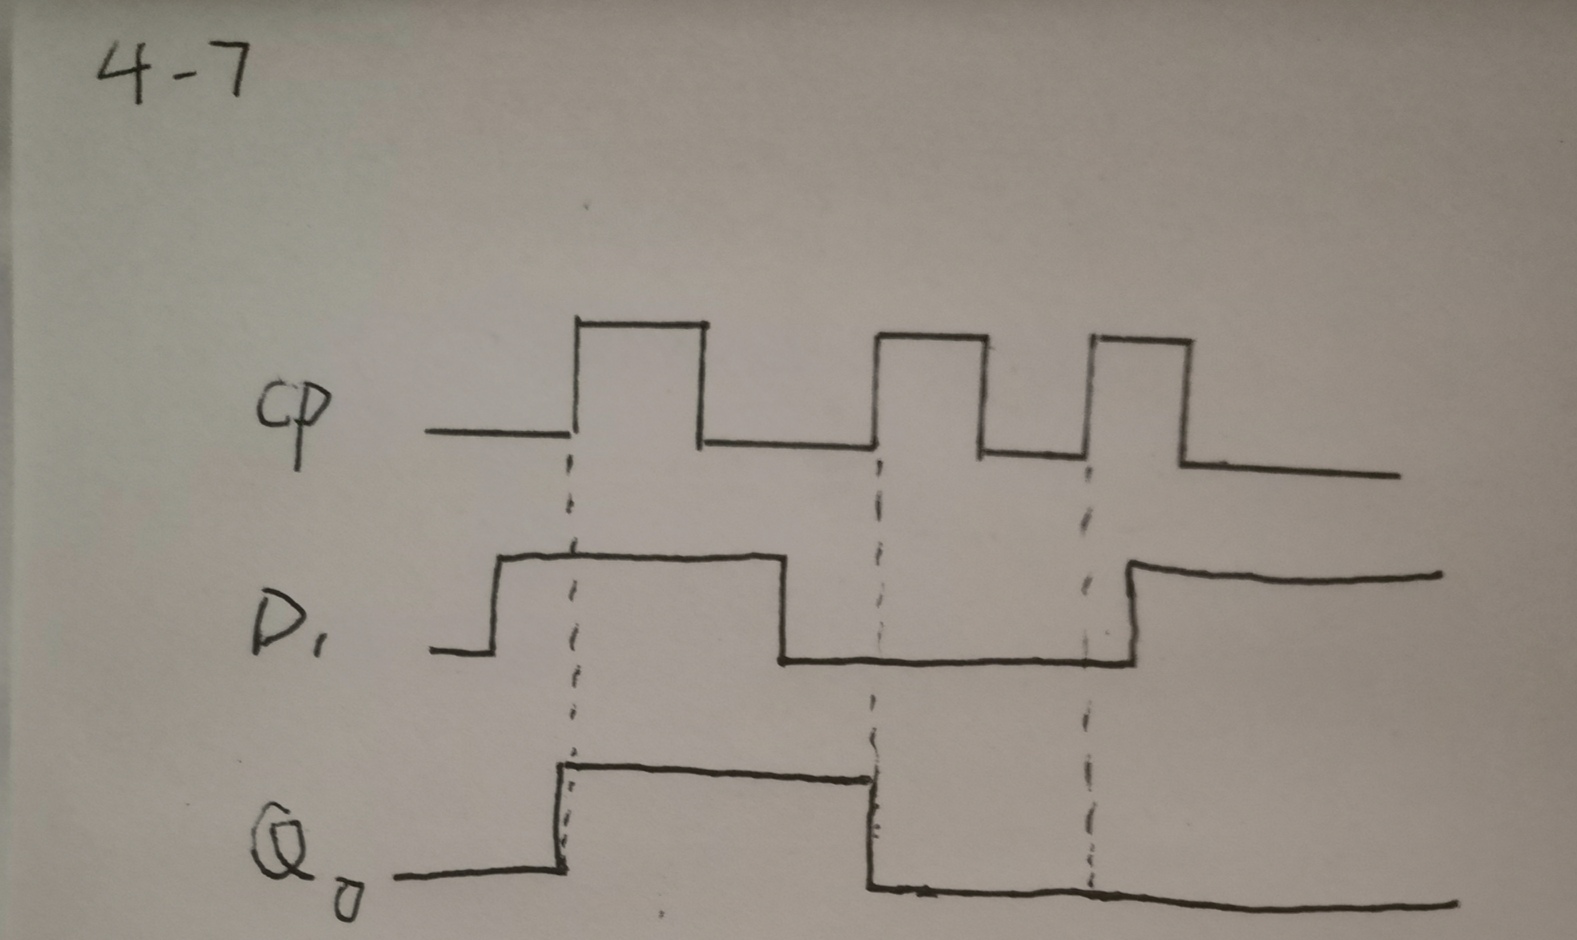 4-7
CP
D1
Q0